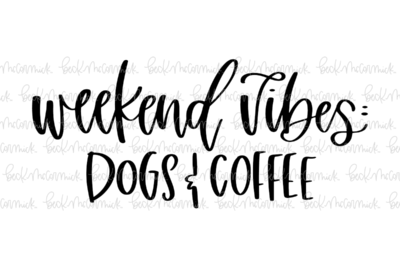 weekend vibes:
DOGS & COFFEE